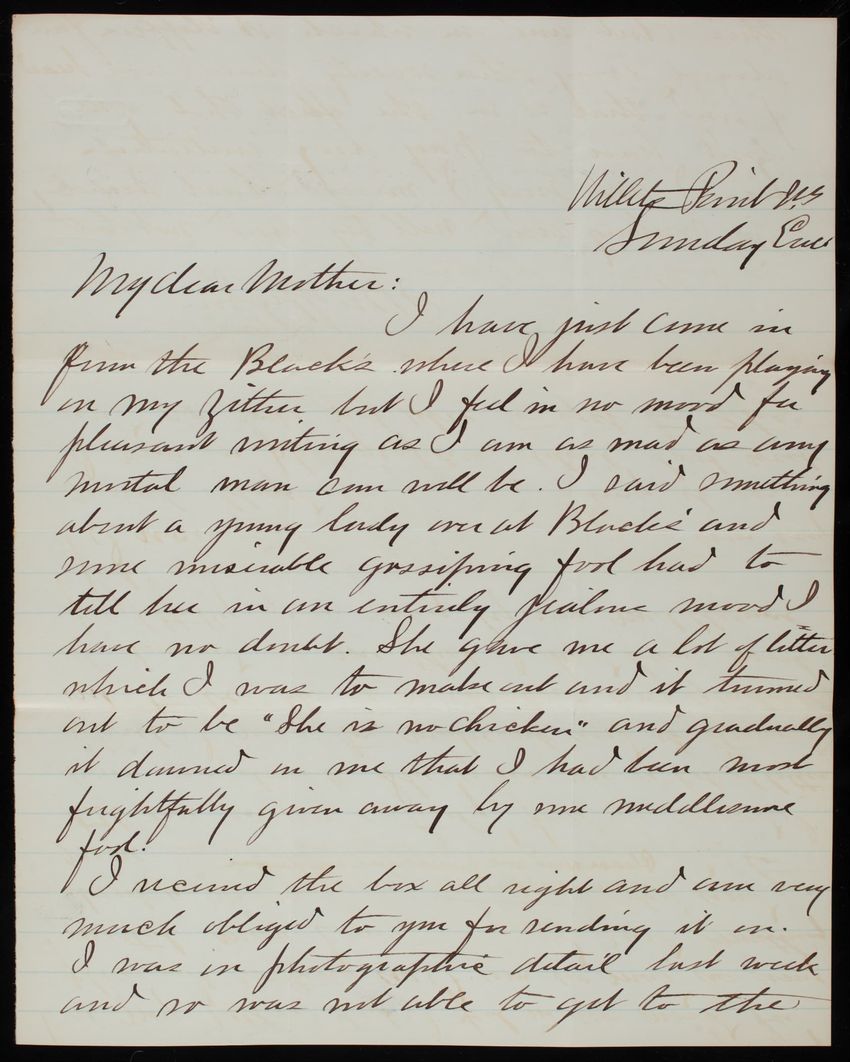 Willets Point N.Y.
Sunday Eve
My dear Mother:
I have just come in
from the Black's where I have been playing
on my zither but I feel in no mood for
pleasant writing as I am as mad as any
mortal man can well be. I said something
about a young lady over at Blacks' and
some miserable gossiping fool had to
tell her in an entirely jealous mood I
have no doubt. She gave me a lot of letters
which I was to make out and it turned
out to be "She is no chicken" and gradually
it dawned on me that I had been most
frightfully given away by some meddlesome
fool.
I received the box all right and am very
much obliged to you for sending it on.
I was on photographic detail last week
and so was not able to get to the